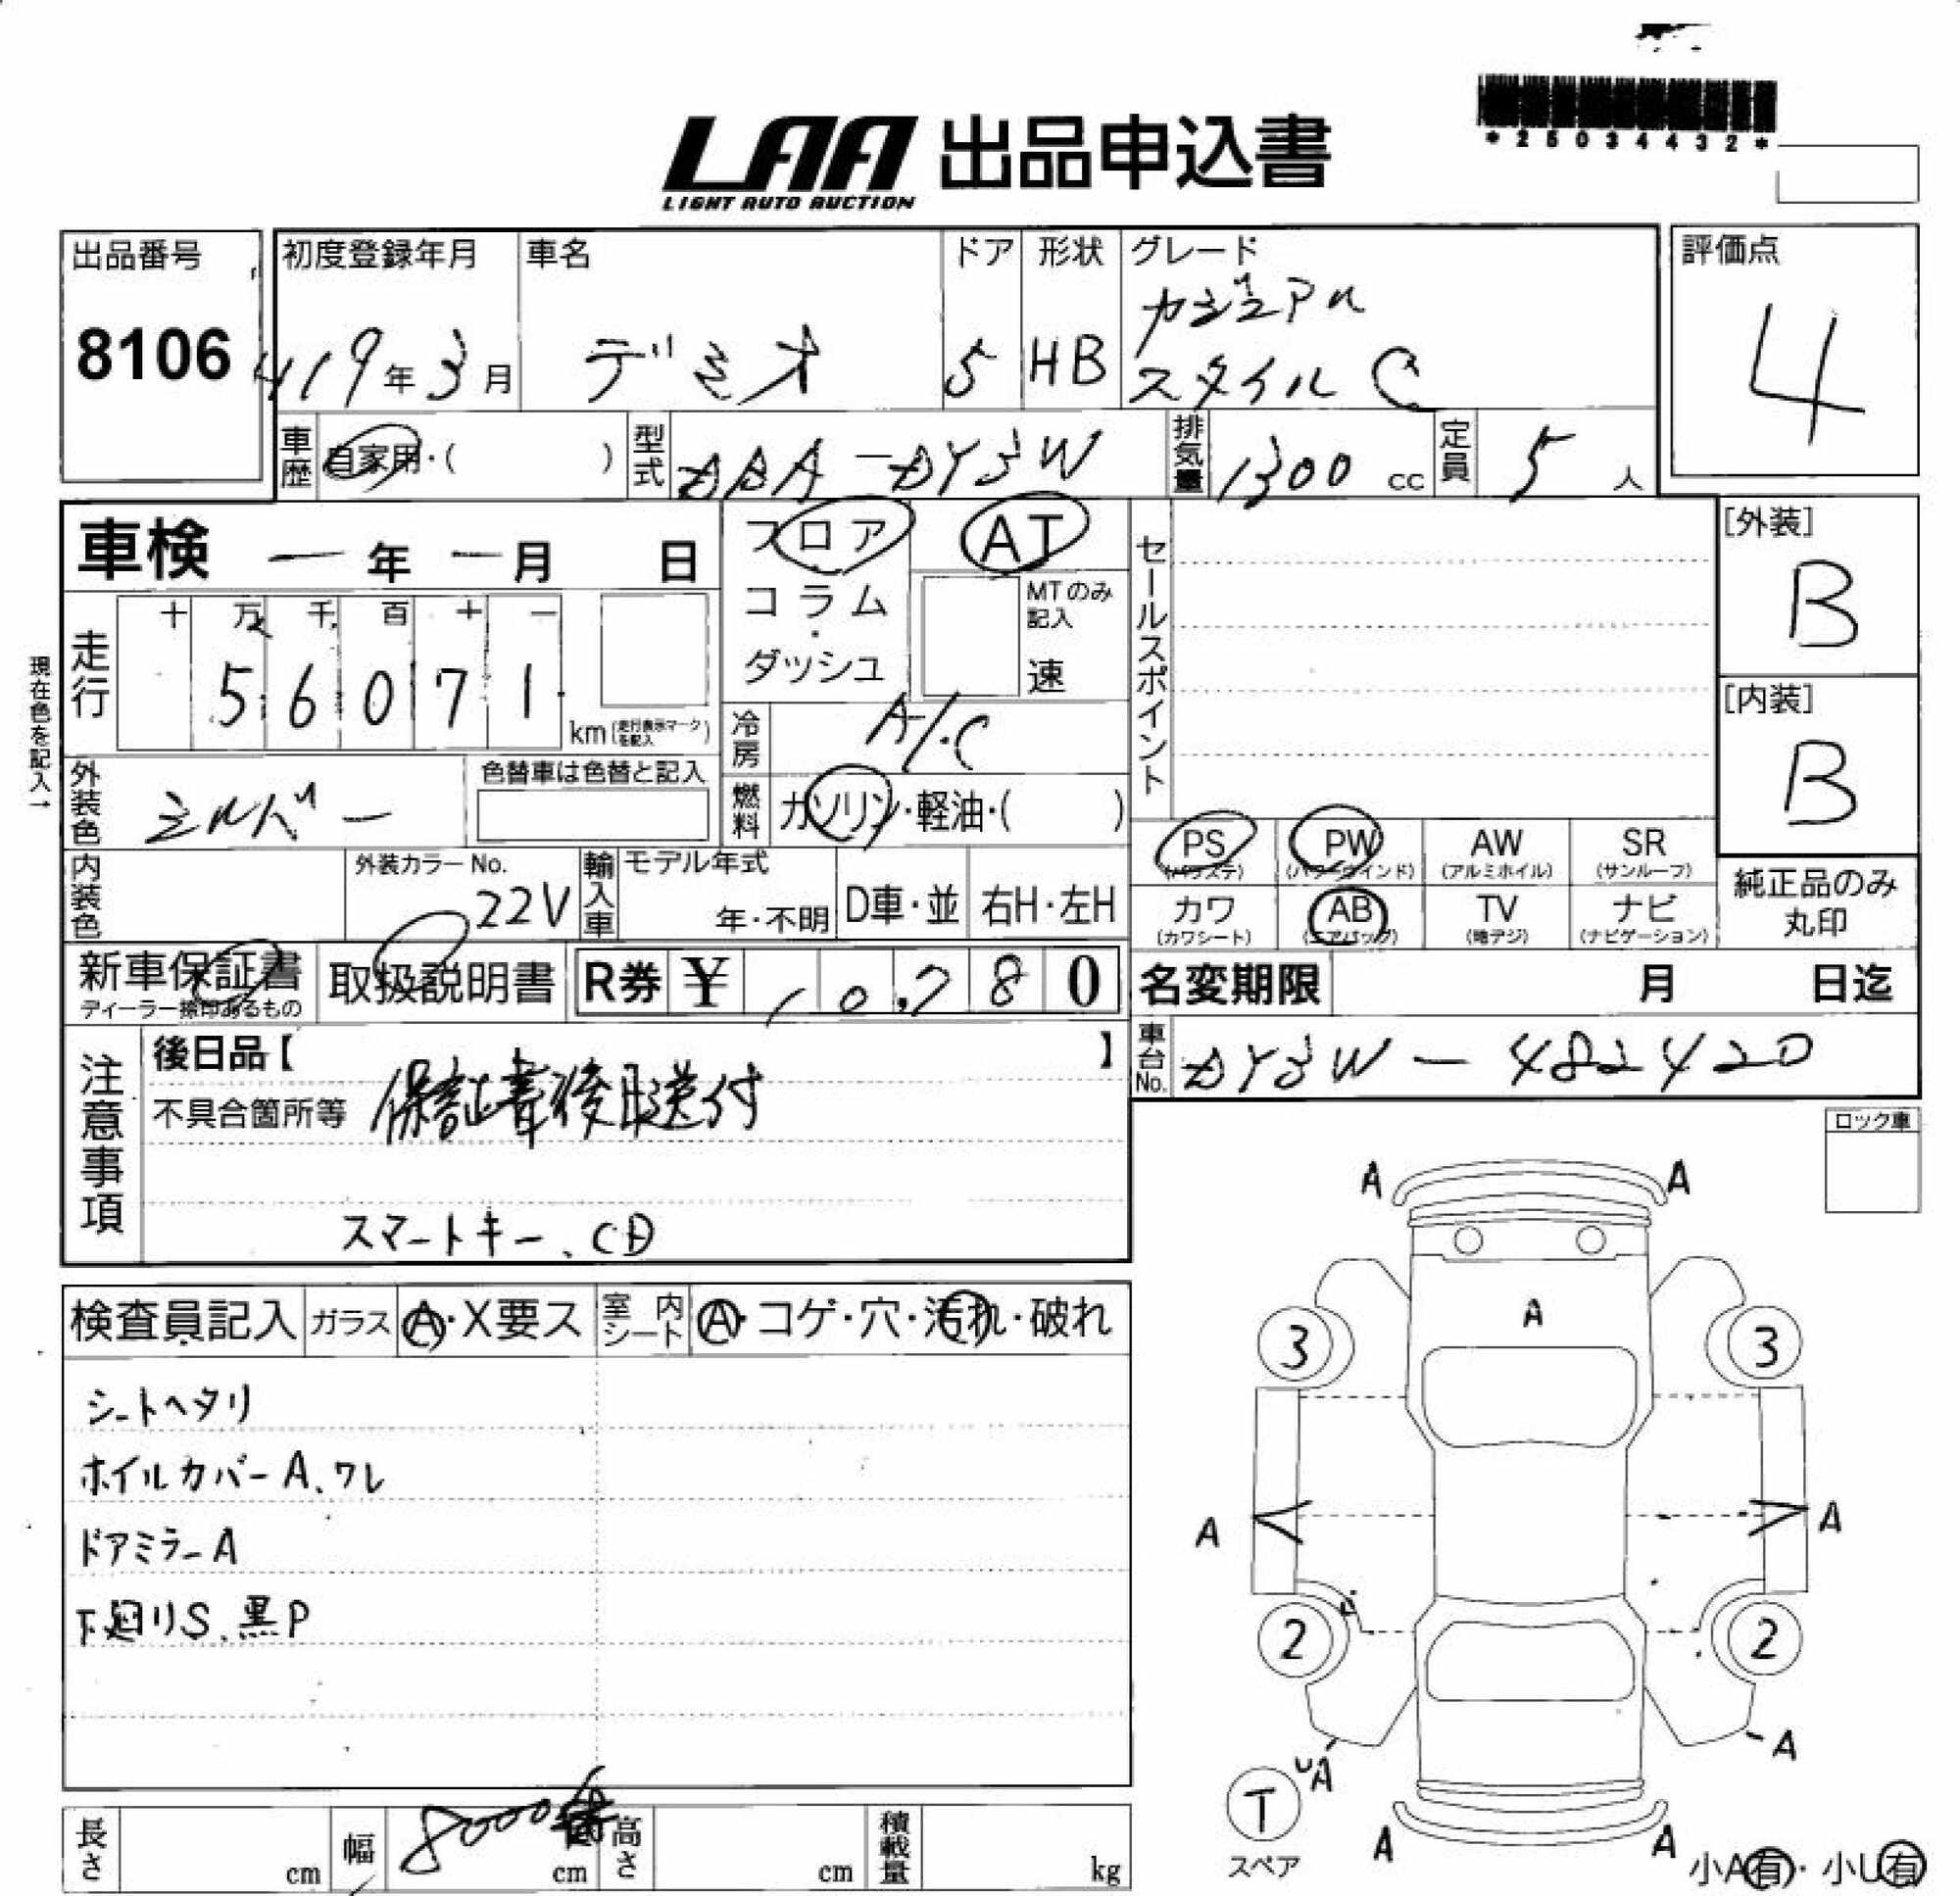 *25034432*
LAA 出品申込書
LIGHT AUTO AUCTION
出品番号
8106
初度登録年月
H19年3月
車名
デミオ
ドア
5
形状
HB
グレード
カジュアル
スタイルC
評価点
4
車歴 自家用・( )
型式 DBA-DY3W
排気量 1300 cc
定員 5 人
車検 一年 一月 日
フロア
コラム
・
ダッシュ
AT
MTのみ
記入
速
セールスポイント
[外装]
B
[内装]
B
現在色を記入→
走行
十 万 千 百 十 一
5 6 0 7 1
km(走行表示マークを記入)
冷房 A/C
外装色 シルバー
色替車は色替と記入
燃料 ガソリン・軽油・( )
PS (パワステ)
PW (パワーウインド)
AW (アルミホイル)
SR (サンルーフ)
カワ (カワシート)
AB (エアバッグ)
TV (地デジ)
ナビ (ナビゲーション)
純正品のみ
丸印
内装色
外装カラーNo.
22V
輸入車
モデル年式
年・不明
D車・並
右H・左H
新車保証書
ディーラー捺印あるもの
取扱説明書
R券 ¥ 10,780
名変期限 月 日迄
車台No. DY3W-482420
注意事項
後日品【 】
不具合箇所等 保証書後日送付
スマートキー、CD
ロック車
検査員記入 ガラス A・X要ス 室内シート A・コゲ・穴・汚れ・破れ
シートヘタリ
ホイルカバーA、ワレ
ドアミラーA
下廻りS、黒P
A A
A
3 3
A A
2 2
UA A
T
スペア
A A
小A有・小U有
長さ cm
幅 cm
8000番
高さ cm
積載量 kg